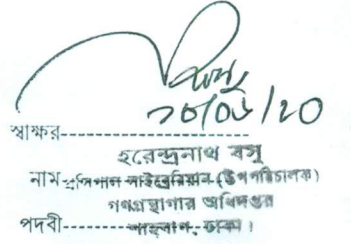 ২০/০৬/২০
স্বাক্ষর-----------------------
হরেন্দ্রনাথ বসু
নাম প্রিন্সিপাল লাইব্রেরিয়ান (উপপরিচালক)
গণগ্রন্থাগার অধিদপ্তর
পদবী---------- শাহবাগ, ঢাকা।